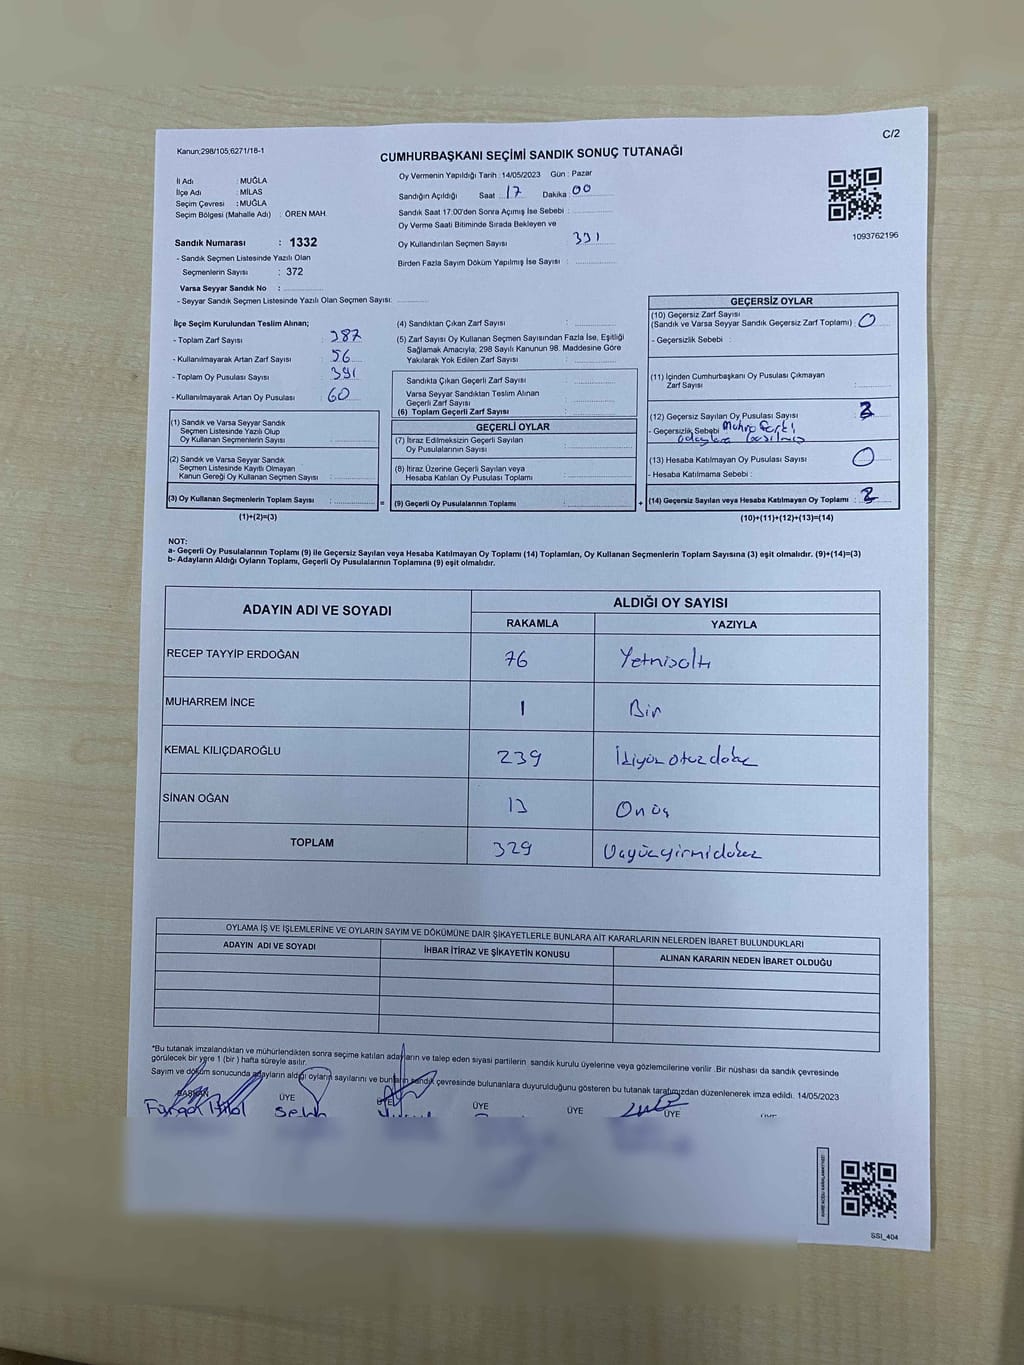 C/2
Kanun;298/105;6271/18-1
CUMHURBAŞKANI SEÇİMİ SANDIK SONUÇ TUTANAĞI
İl Adı : MUĞLA
İlçe Adı : MİLAS
Seçim Çevresi : MUĞLA
Seçim Bölgesi (Mahalle Adı) : ÖREN MAH.
Sandık Numarası : 1332
- Sandık Seçmen Listesinde Yazılı Olan
Seçmenlerin Sayısı : 372
Varsa Seyyar Sandık No :
- Seyyar Sandık Seçmen Listesinde Yazılı Olan Seçmen Sayısı:
Oy Vermenin Yapıldığı Tarih : 14/05/2023 Gün : Pazar
Sandığın Açıldığı Saat : 17 Dakika : 00
Sandık Saat 17:00'den Sonra Açımış İse Sebebi :
Oy Verme Saati Bitiminde Sırada Bekleyen ve
Oy Kullandırılan Seçmen Sayısı : 331
Birden Fazla Sayım Döküm Yapılmış İse Sayısı :
1093762196
İlçe Seçim Kurulundan Teslim Alınan;
- Toplam Zarf Sayısı : 387
- Kullanılmayarak Artan Zarf Sayısı : 56
- Toplam Oy Pusulası Sayısı : 391
- Kullanılmayarak Artan Oy Pusulası : 60
(1) Sandık ve Varsa Seyyar Sandık
Seçmen Listesinde Yazılı Olup
Oy Kullanan Seçmenlerin Sayısı :
(2) Sandık ve Varsa Seyyar Sandık
Seçmen Listesinde Kayıtlı Olmayan
Kanun Gereği Oy Kullanan Seçmen Sayısı :
(3) Oy Kullanan Seçmenlerin Toplam Sayısı :
(1)+(2)=(3)
(4) Sandıktan Çıkan Zarf Sayısı :
(5) Zarf Sayısı Oy Kullanan Seçmen Sayısından Fazla İse, Eşitliği
Sağlamak Amacıyla, 298 Sayılı Kanunun 98. Maddesine Göre
Yakılarak Yok Edilen Zarf Sayısı :
Sandıkta Çıkan Geçerli Zarf Sayısı :
Varsa Seyyar Sandıktan Teslim Alınan
Geçerli Zarf Sayısı :
(6) Toplam Geçerli Zarf Sayısı :
GEÇERLİ OYLAR
(7) İtiraz Edilmeksizin Geçerli Sayılan
Oy Pusulasının Sayısı :
(8) İtiraz Üzerine Geçerli Sayılan veya
Hesaba Katılan Oy Pusulası Toplamı :
= (9) Geçerli Oy Pusulalarının Toplamı :
GEÇERSİZ OYLAR
(10) Geçersiz Zarf Sayısı
(Sandık ve Varsa Seyyar Sandık Geçersiz Zarf Toplamı) : 0
- Geçersizlik Sebebi :
(11) İçinden Cumhurbaşkanı Oy Pusulası Çıkmayan
Zarf Sayısı :
(12) Geçersiz Sayılan Oy Pusulası Sayısı :
- Geçersizlik Sebebi :
(13) Hesaba Katılmayan Oy Pusulası Sayısı : 0
- Hesaba Katılmama Sebebi :
+ (14) Geçersiz Sayılan veya Hesaba Katılmayan Oy Toplamı :
(10)+(11)+(12)+(13)=(14)
NOT:
a- Geçerli Oy Pusulalarının Toplamı (9) ile Geçersiz Sayılan veya Hesaba Katılmayan Oy Toplamı (14) Toplamları, Oy Kullanan Seçmenlerin Toplam Sayısına (3) eşit olmalıdır. (9)+(14)=(3)
b- Adayların Aldığı Oyların Toplamı, Geçerli Oy Pusulalarının Toplamına (9) eşit olmalıdır.
ADAYIN ADI VE SOYADI
ALDIĞI OY SAYISI
RAKAMLA YAZIYLA
RECEP TAYYİP ERDOĞAN 76 Yetmişaltı
MUHARREM İNCE 1 Bir
KEMAL KILIÇDAROĞLU 239 İkiyüz otuz dokuz
SİNAN OĞAN 13 Onüç
TOPLAM 329 Üçyüzyirmidokuz
OYLAMA İŞ VE İŞLEMLERİNE VE OYLARIN SAYIM VE DÖKÜMÜNE DAİR ŞİKAYETLERLE BUNLARA AİT KARARLARIN NELERDEN İBARET BULUNDUKLARI
ADAYIN ADI VE SOYADI İHBAR İTİRAZ VE ŞİKAYETİN KONUSU ALINAN KARARIN NEDEN İBARET OLDUĞU
*Bu tutanak imzalandıktan ve mühürlendikten sonra seçime katılan adayların ve talep eden siyasi partilerin sandık kurulu üyelerine veya gözlemcilerine verilir .Bir nüshası da sandık çevresinde
görülecek bir yere 1 (bir ) hafta süreyle asılır.
Sayım ve döküm sonucunda adayların aldığı oyların sayılarını ve bunların sandık çevresinde bulunanlara duyurulduğunu gösteren bu tutanak tarafımızdan düzenlenerek imza edildi. 14/05/2023
BAŞKAN ÜYE ÜYE ÜYE ÜYE ÜYE
SSI_404